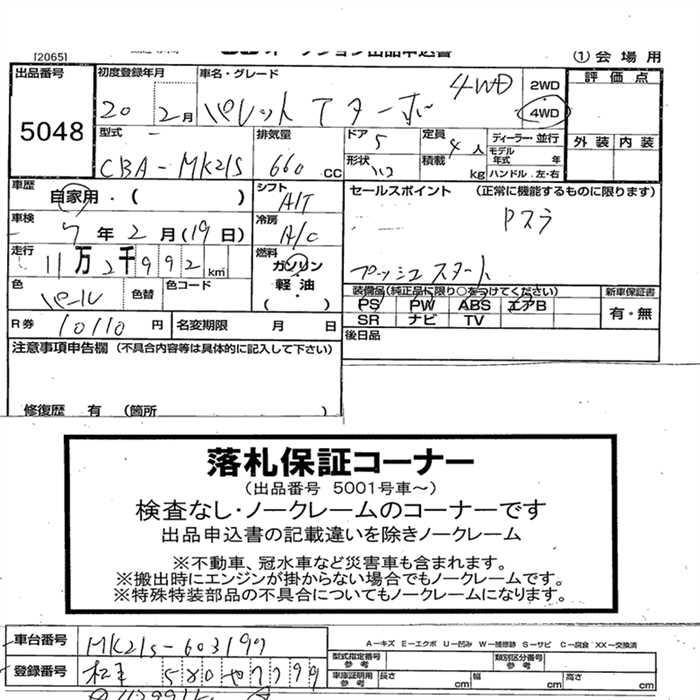 [20651]
オークション出品申込書
①会場用
出品番号
5048
初度登録年月
20 2月
車名・グレード
パレット Tターボ 4WD
2WD
4WD
評価点
外装 内装
型式
CBA-MK21S
排気量
660 CC
ドア
5
定員
4人
ディーラー・並行
モデル年式 年
形状
積載 kg
ハンドル 左・右
車歴
自家用・( )
シフト
A/T
セールスポイント (正常に機能するものに限ります)
Pスラ
プッシュスタート
車検
7年2月(19日)
冷房
A/C
走行
11万2千992km
燃料
ガソリン
軽油・
( )
色
パール
色替
色コード
装備品(純正品に限り○をつけてください)
PS PW ABS エアB
SR ナビ TV
新車保証書
有・無
R券 10110円
名変期限 月 日
後日品
注意事項申告欄(不具合内容等は具体的に記入して下さい)
修復歴 有 (箇所 )
落札保証コーナー
(出品番号 5001号車~)
検査なし・ノークレームのコーナーです
出品申込書の記載違いを除きノークレーム
※不動車、冠水車など災害車も含まれます。
※搬出時にエンジンが掛からない場合でもノークレームです。
※特殊特装部品の不具合についてもノークレームになります。
車台番号
MK21S-603197
A-キズ E-エクボ U-凹み W-補修跡 S-サビ C-腐食 XX-交換済
登録番号
580 や 7799
型式指定番号参考
類別区分番号参考
車庫証明用参考 長さ cm 幅 cm 高さ cm